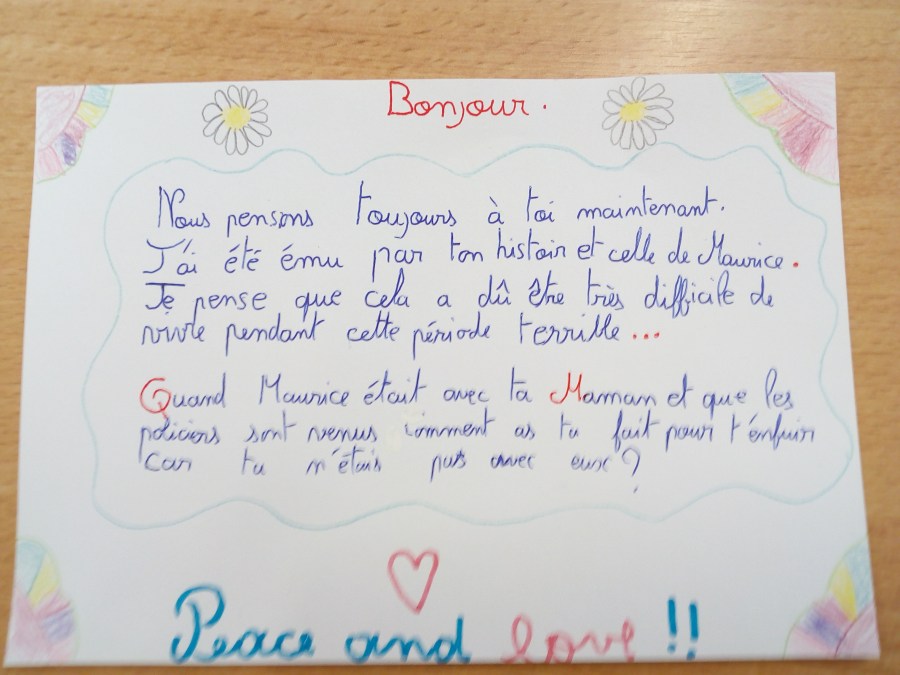 Bonjour.
Nous pensons toujours à toi maintenant.
J'ai été ému par ton histoir et celle de Maurice.
Je pense que cela a dû être très difficile de
vivre pendant cette période terrille...
Quand Maurice était avec ta Maman et que les
policiers sont venus comment as tu fait pour t'enfuir
car tu n'étais pas avec eux?
Peace and love!!